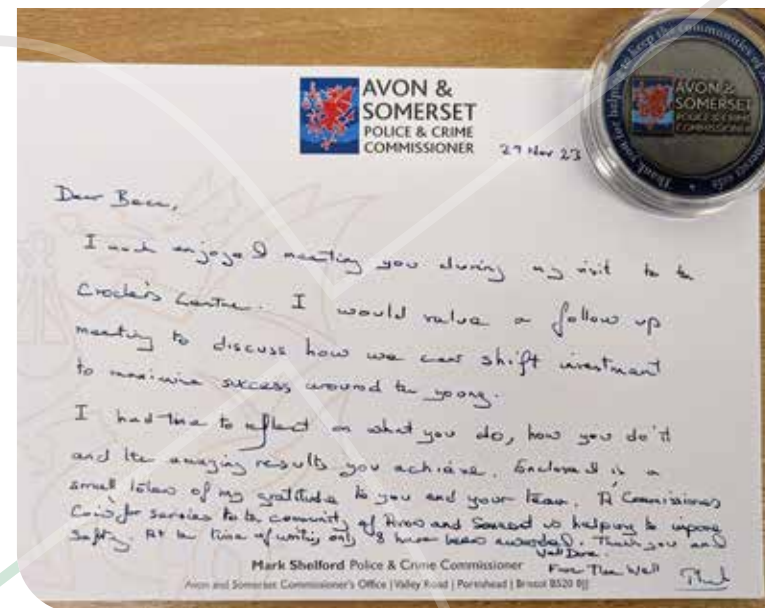 AVON &
SOMERSET
POLICE & CRIME
COMMISSIONER
29 Nov 23
AVON &
SOMERSET
POLICE & CRIME
COMMISSIONER
Thank you for helping to keep the communities of
safe
Dear
I much enjoyed meeting you during my visit to the
Centre. I would value a follow up
meeting to discuss how we can shift investment
to maximise success around the young.
I had time to reflect on what you do, how you do it
and the amazing results you achieve. Enclosed is a
small token of my gratitude to you and your team. A Commissioners
Coin for services to the community of Avon and Somerset in helping to improve
Safety. At the time of writing only 8 have been awarded. Thank you and
Well Done.
Mark Shelford Police & Crime Commissioner
Fare Thee Well
Avon and Somerset Commissioner's Office | Valley Road | Portishead | Bristol BS20 8JJ